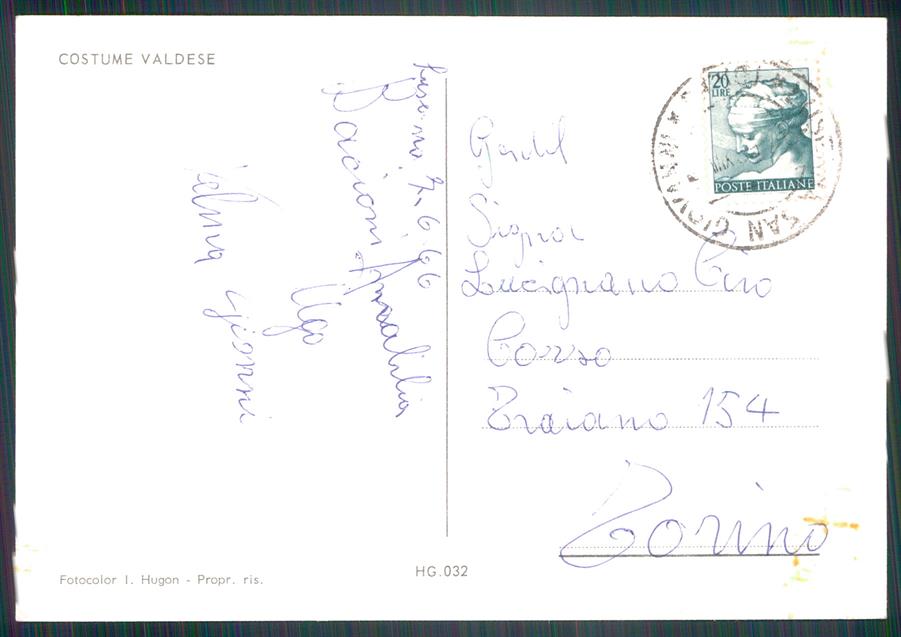 COSTUME VALDESE
7.6.66
Bacioni Amalilia
Ugo
Gianni
Fotocolor I. Hugon - Propr. ris.
HG.032
20
LIRE
POSTE ITALIANE
SAN GIOVANNI
Gentil
Signor
Lucignano Ciro
Corso
Traiano 154
Torino